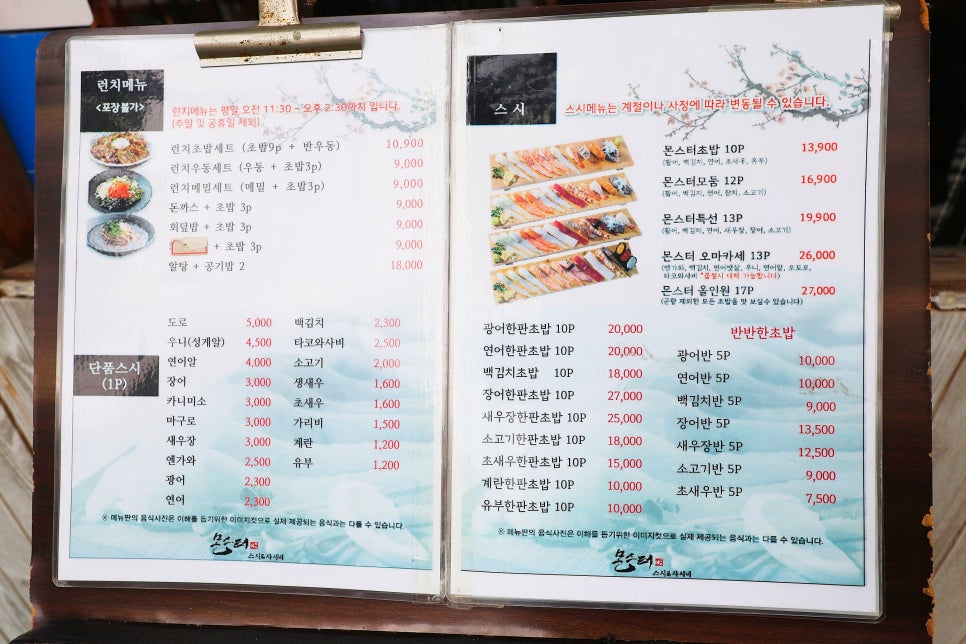 런치메뉴
<포장불가>
런치메뉴는 평일 오전 11:30 - 오후 2:30까지 입니다.
(주말 및 공휴일 제외)
런치초밥세트 (초밥9p + 반우동) 10,900
런치우동세트 (우동 + 초밥3p) 9,000
런치메밀세트 (메밀 + 초밥3p) 9,000
돈까스 + 초밥 3p 9,000
회덮밥 + 초밥 3p 9,000
+ 초밥 3p 9,000
알탕 + 공기밥 2 18,000
단품스시
(1P)
도로 5,000
우니(성게알) 4,500
연어알 4,000
장어 3,000
카니미소 3,000
마구로 3,000
새우장 3,000
엔가와 2,500
광어 2,300
연어 2,300
백김치 2,300
타코와사비 2,500
소고기 2,000
생새우 1,600
초새우 1,600
가리비 1,500
계란 1,200
유부 1,200
※ 메뉴판의 음식사진은 이해를 돕기위한 이미지컷으로 실제 제공되는 음식과는 다를 수 있습니다.
몬스터
스시&사시미
스시
스시메뉴는 계절이나 사정에 따라 변동될 수 있습니다.
몬스터초밥 10P 13,900
(활어, 백김치, 연어, 초새우, 유부)
몬스터모둠 12P 16,900
(활어, 백김치, 연어, 참치, 소고기)
몬스터특선 13P 19,900
(활어, 백김치, 연어, 새우장, 장어, 소고기)
몬스터 오마카세 13P 26,000
(엔가와, 백김치, 연어뱃살, 우니, 연어알, 오도로,
타코와사비 *품절시 대체 가능합니다)
몬스터 올인원 17P 27,000
(군함 제외한 모든 초밥을 맛 보실수 있습니다)
광어한판초밥 10P 20,000
연어한판초밥 10P 20,000
백김치초밥 10P 18,000
장어한판초밥 10P 27,000
새우장한판초밥 10P 25,000
소고기한판초밥 10P 18,000
초새우한판초밥 10P 15,000
계란한판초밥 10P 10,000
유부한판초밥 10P 10,000
반반한초밥
광어반 5P 10,000
연어반 5P 10,000
백김치반 5P 9,000
장어반 5P 13,500
새우장반 5P 12,500
소고기반 5P 9,000
초새우반 5P 7,500
※ 메뉴판의 음식사진은 이해를 돕기위한 이미지컷으로 실제 제공되는 음식과는 다를 수 있습니다.
몬스터
스시&사시미